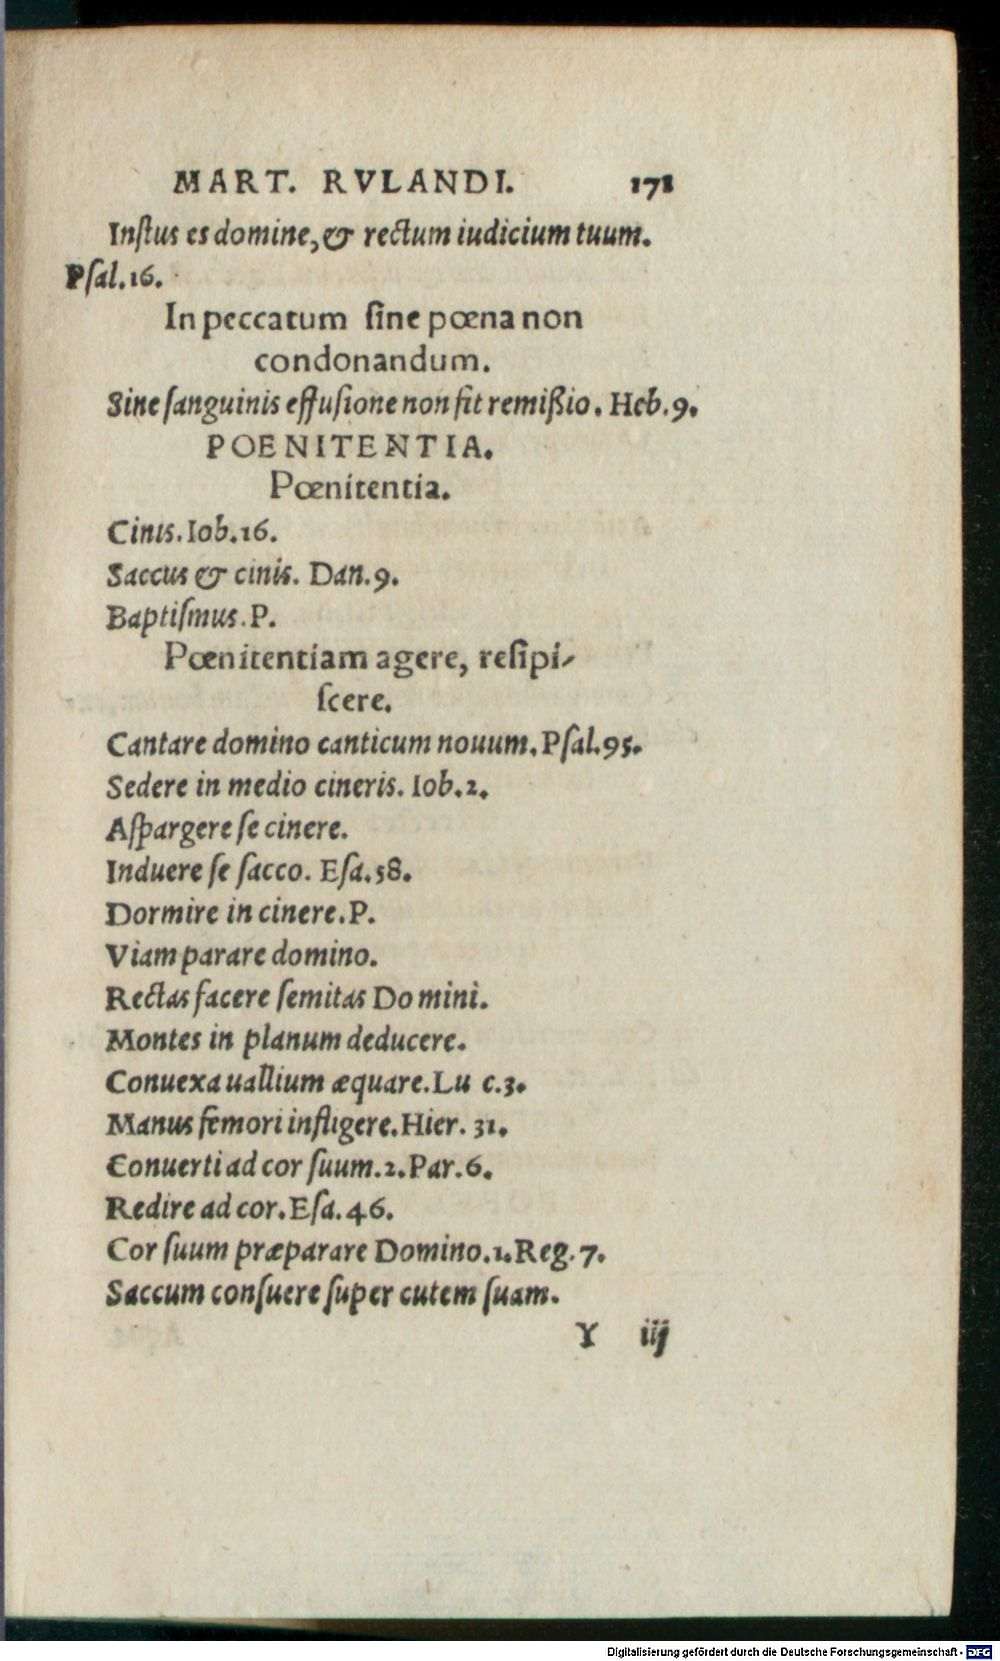 MART. RVLANDI. 171
Iustus es domine, & rectum iudicium tuum.
Psal. 16.
In peccatum ſine pœna non
condonandum.
Sine ſanguinis effuſione non fit remißio. Heb. 9.
POENITENTIA.
Pœnitentia.
Cinis. Iob. 16.
Saccus & cinis. Dan. 9.
Baptiſmus. P.
Pœnitentiam agere, reſipi-
ſcere.
Cantare domino canticum nouum. Pſal. 95.
Sedere in medio cineris. Iob. 2.
Aſpargere ſe cinere.
Induere ſe ſacco. Eſa. 58.
Dormire in cinere. P.
Viam parare domino.
Rectas facere ſemitas Domini.
Montes in planum deducere.
Conuexa uallium æquare. Luc. 3.
Manus femori infligere. Hier. 31.
Conuerti ad cor ſuum. 2. Par. 6.
Redire ad cor. Eſa. 46.
Cor ſuum præparare Domino. 1. Reg. 7.
Saccum conſuere ſuper cutem ſuam.
Y iij
Digitalisierung gefördert durch die Deutsche Forschungsgemeinschaft - DFG